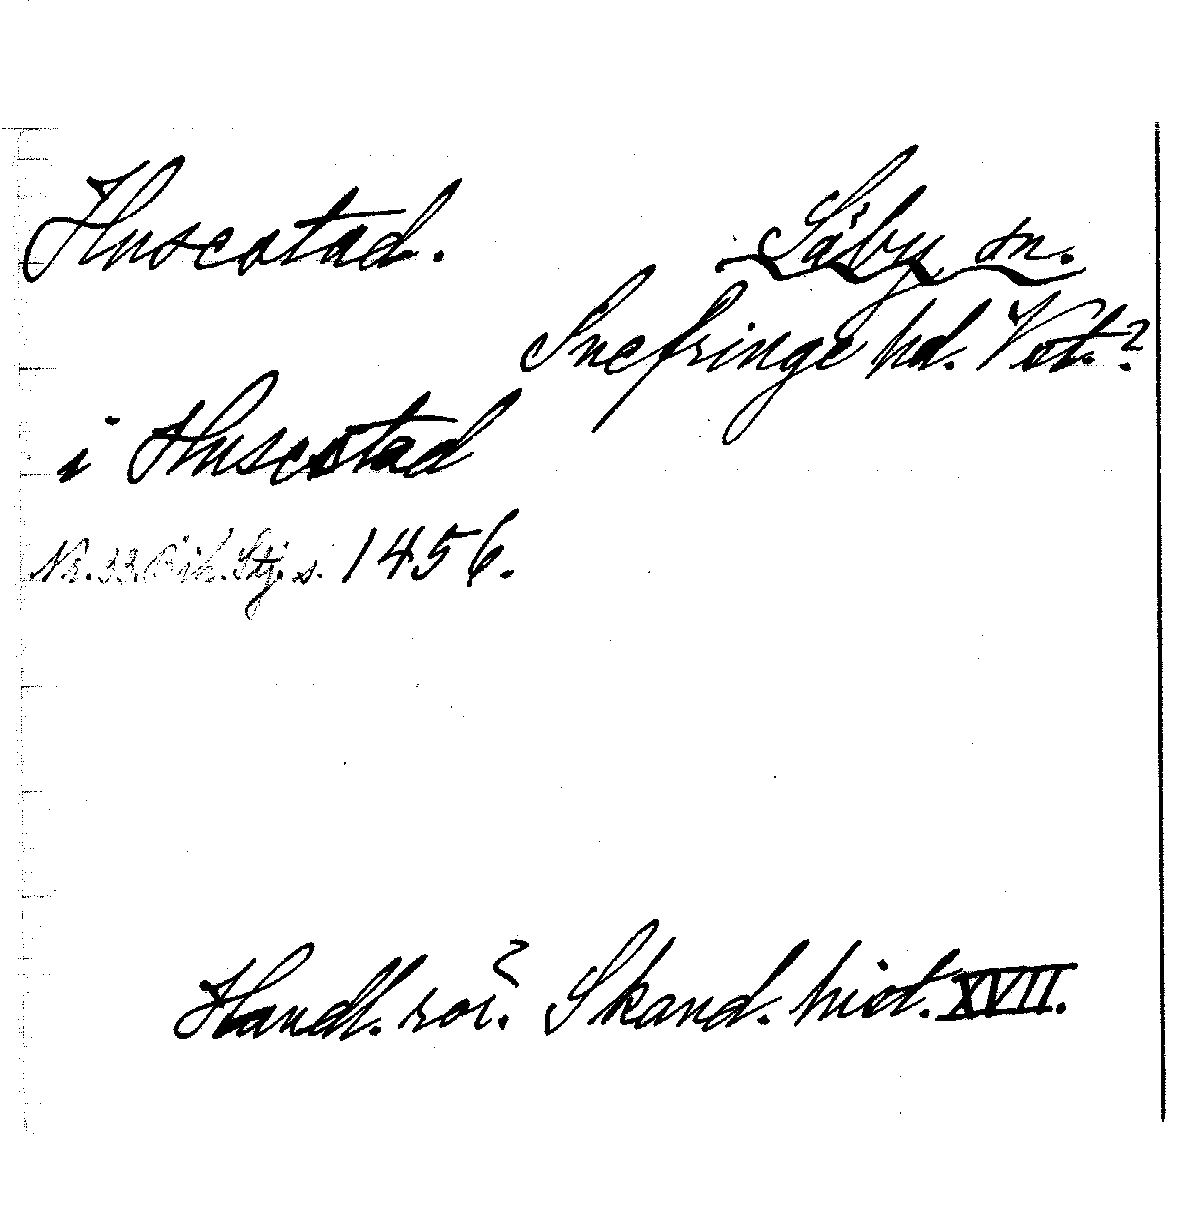 Huscstad.
Säby sn.
Snefringe hd. Vst.?
i Huscstad
Nr. 33 Bih. Stj. s. 1456.
Handl. rör. Skand. hist. XVII.